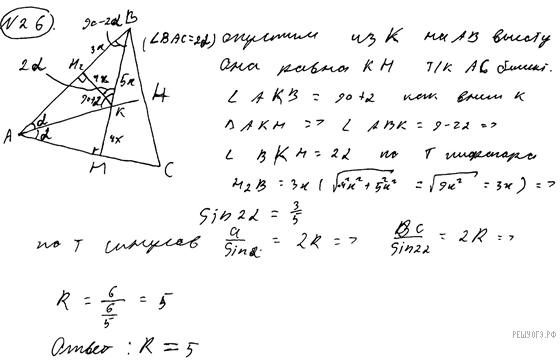 N26.
90-2α
B
3x
H₂
2α
4x
5x
90+α
K
H
A
α
α
4x
M
C
(∠BAC=2α) опустим из K на AB высоту
Она равна KM т/к AG биссект.
∠AKB = 90+α как внеш к
ΔAKM => ∠ABK = 90-2α =>
∠BKH = 2α по т пифагора
H₂B = 3x (√4²x²+5²x² = √9x² = 3x) =>
Sin2α = 3/5
по т синусов a/Sinα = 2R => BC/Sin2α = 2R =>
R = 6/(6/5) = 5
Ответ: R = 5
РЕШУОГЭ.РФ